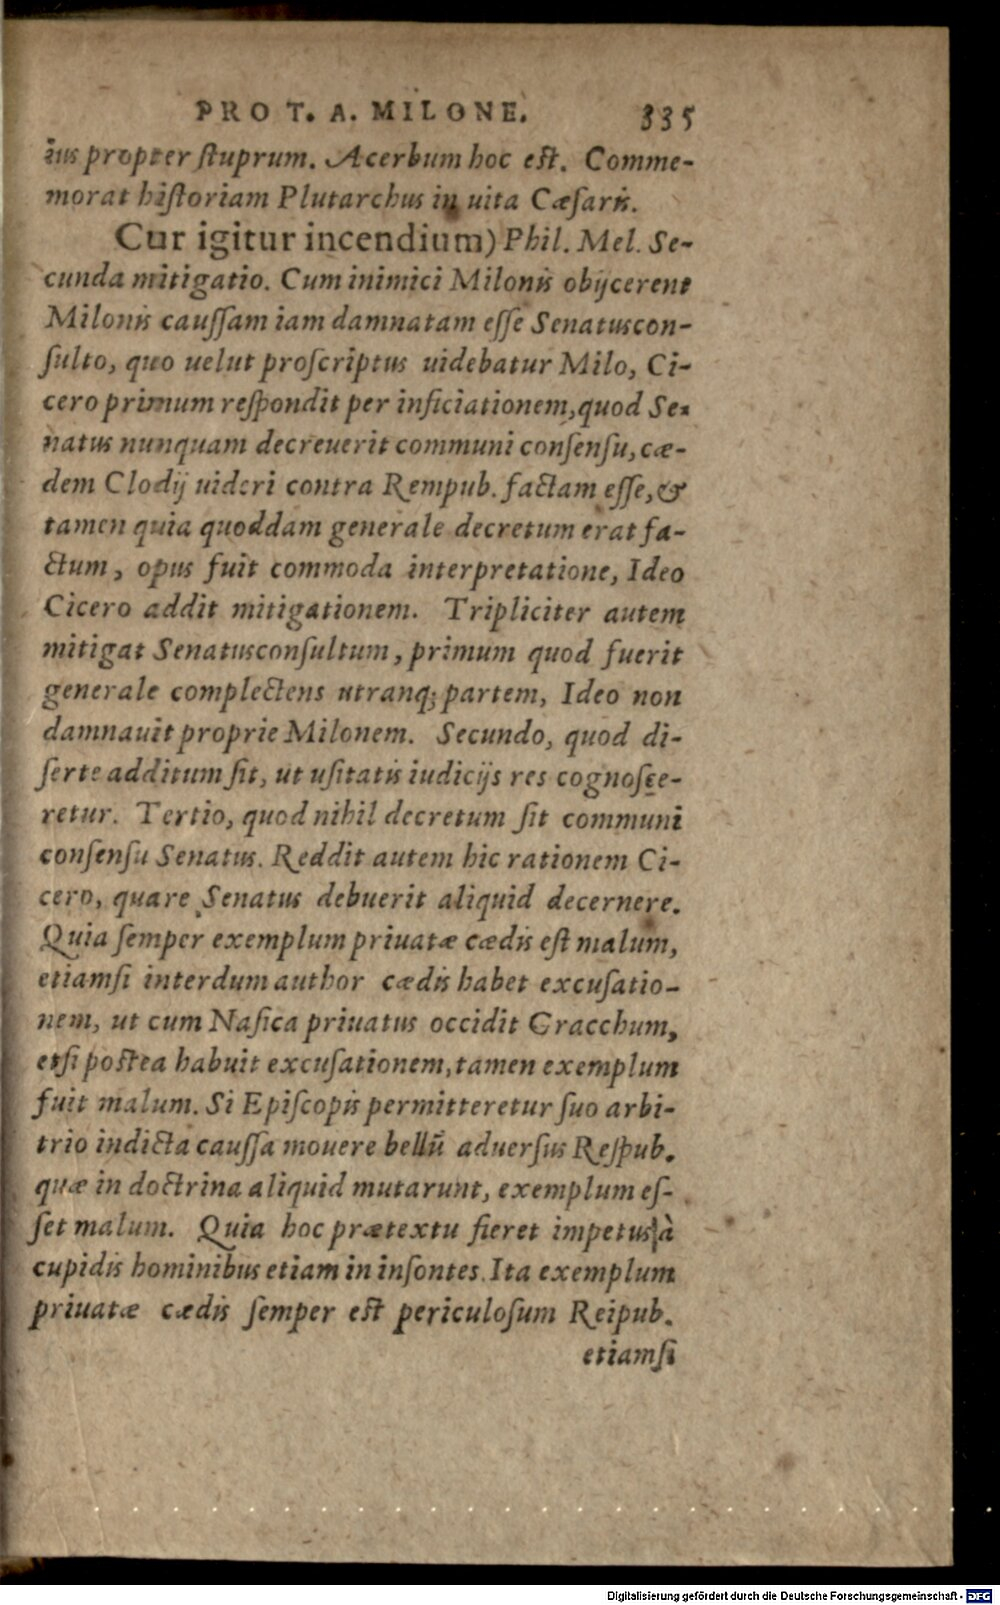 PRO T. A. MILONE. 335
ius propter ſtuprum. Acerbum hoc eſt. Comme-
morat hiſtoriam Plutarchus in uita Cæſaris.
Cur igitur incendium) Phil. Mel. Se-
cunda mitigatio. Cum inimici Milonis obijcerent
Milonis cauſſam iam damnatam eſſe Senatuscon-
ſulto, quo uelut proſcriptus uidebatur Milo, Ci-
cero primum reſpondit per inficiationem, quod Se-
natus nunquam decreuerit communi conſenſu, cæ-
dem Clodij uideri contra Rempub. factam eſſe, &
tamen quia quoddam generale decretum erat fa-
ctum, opus fuit commoda interpretatione, Ideo
Cicero addit mitigationem. Tripliciter autem
mitigat Senatusconſultum, primum quod fuerit
generale complectens utranq; partem, Ideo non
damnauit proprie Milonem. Secundo, quod di-
ſerte additum ſit, ut uſitatis iudicijs res cognoſce-
retur. Tertio, quod nihil decretum ſit communi
conſenſu Senatus. Reddit autem hic rationem Ci-
cero, quare Senatus debuerit aliquid decernere.
Quia ſemper exemplum priuatæ cædis eſt malum,
etiamſi interdum author cædis habet excuſatio-
nem, ut cum Naſica priuatus occidit Gracchum,
etſi poſtea habuit excuſationem, tamen exemplum
fuit malum. Si Epiſcopis permitteretur ſuo arbi-
trio indicta cauſſa mouere bellū aduerſus Reſpub.
quæ in doctrina aliquid mutarunt, exemplum eſ-
ſet malum. Quia hoc prætextu fieret impetus à
cupidis hominibus etiam in inſontes. Ita exemplum
priuatæ cædis ſemper eſt periculoſum Reipub.
etiamſi
Digitalisierung gefördert durch die Deutsche Forschungsgemeinschaft - DFG